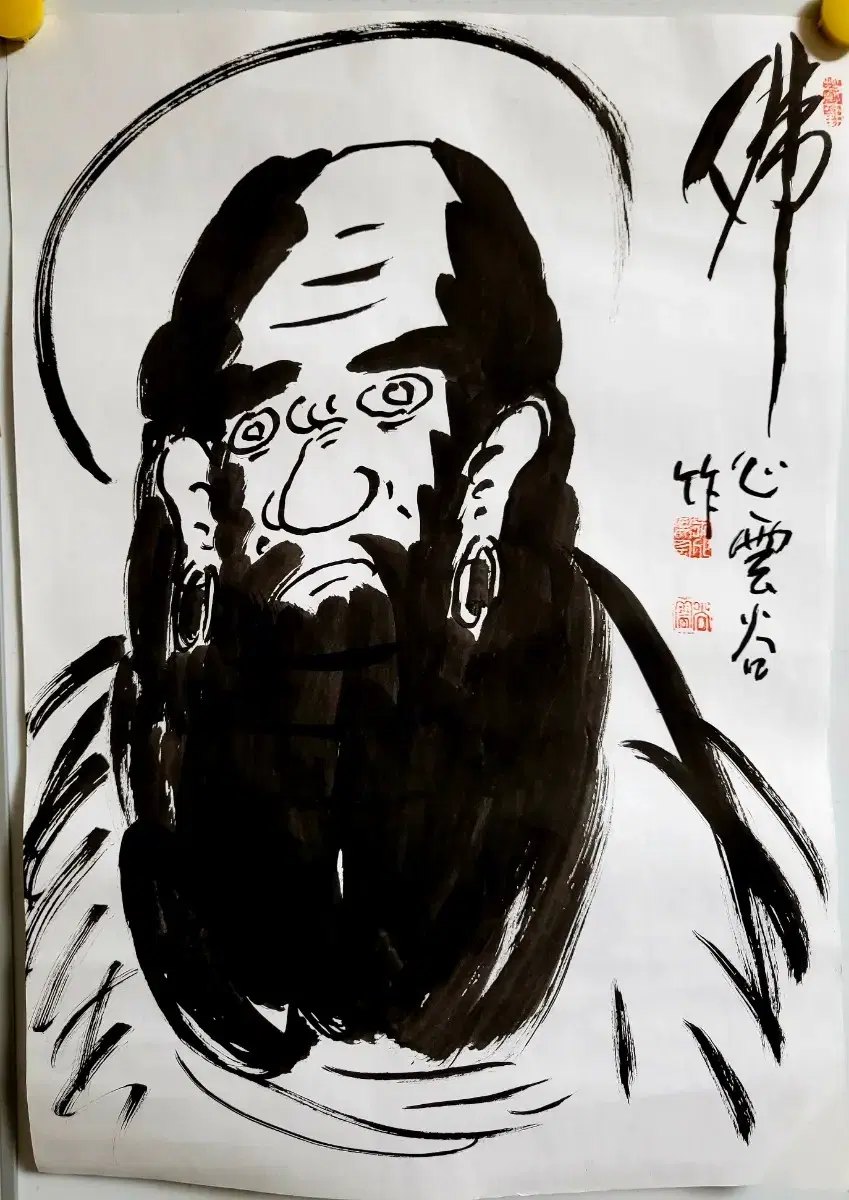 佛
心雲谷
作